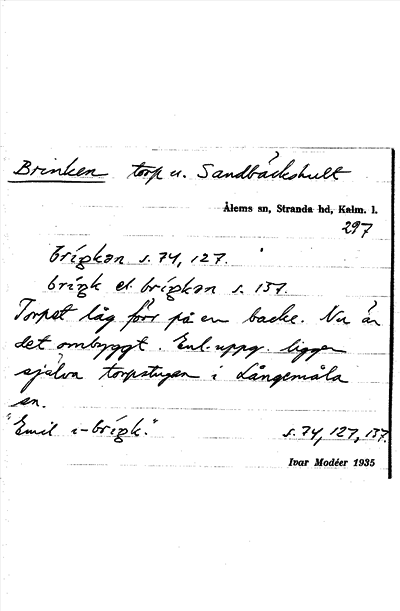 Brinken torp u. Sandbäckshult
Ålems sn, Stranda hd, Kalm. l.
297
brigkan s. 74, 127.
brigk el. brigkan s. 137.
Torpet låg förr på en backe. Nu är
det ombyggt. Enl. uppg. ligger
själva torpstugan i Långemåla
sn.
"Emil i-brigk." s. 74, 127, 137.
Ivar Modéer 1935